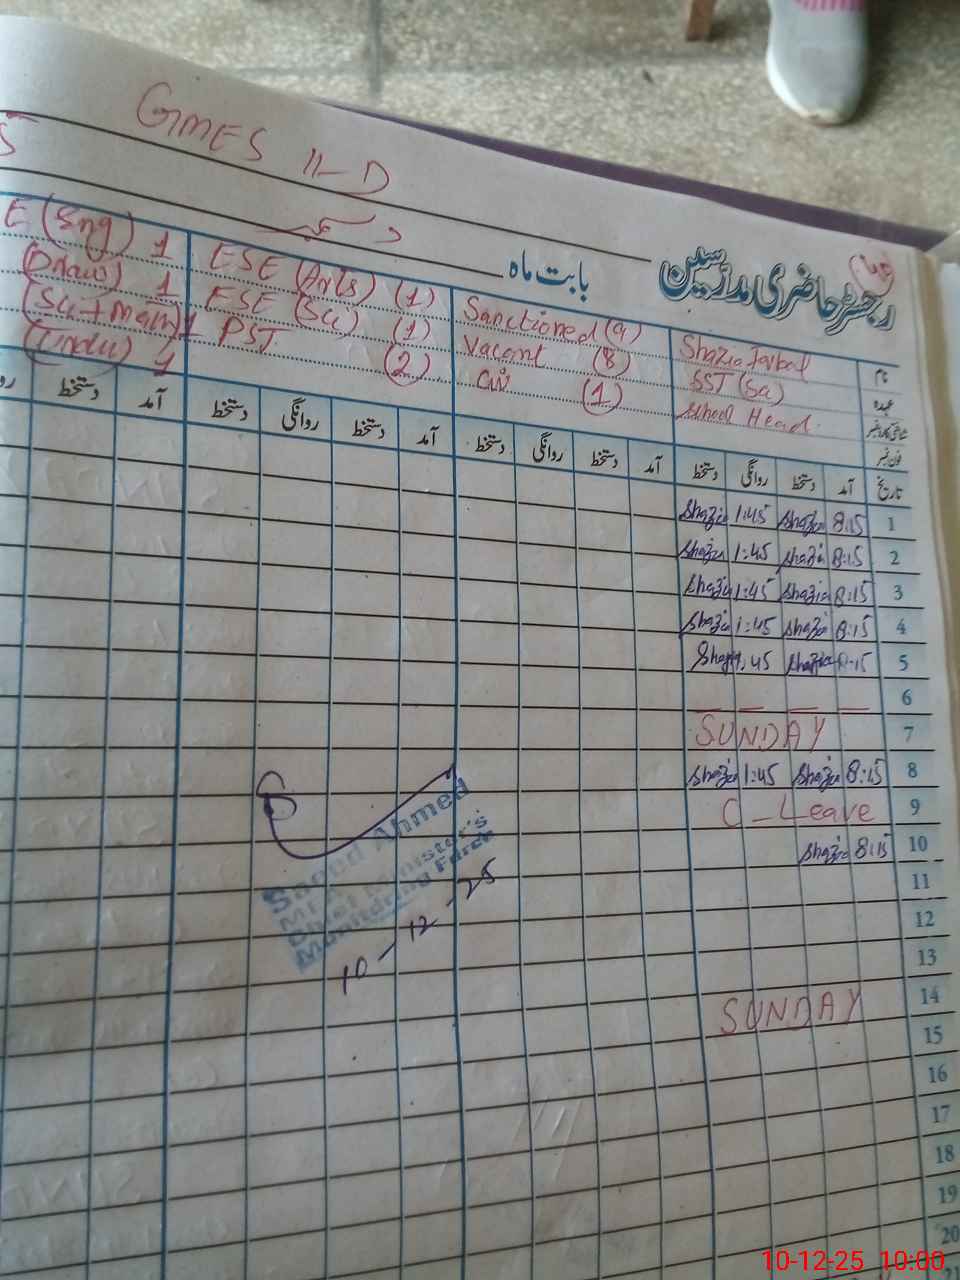 GMES 11-D
رجسٹر حاضری مدرسین
بابت ماہ
دسمبر
نام Shazia Iqbal
عہدہ SST (Sci)
شناختی کارڈ نمبر School Head
فون نمبر
Sanctioned (9)
Vacant (8)
(1)
ESE (Arts) (1)
ESE (Sci) (1)
PST (2)
E (Eng) 1
(Draw) 1
(Sci + Math) 1
(Urdu) 1
تاریخ آمد دستخط روانگی دستخط آمد دستخط روانگی دستخط آمد دستخط روانگی دستخط آمد دستخط
1 8:15 Shazia 1:45 Shazia
2 8:15 Shazia 1:45 Shazia
3 8:15 Shazia 1:45 Shazia
4 8:15 Shazia 1:45 Shazia
5 8:15 Shazia 1:45 Shazia
6 — — — —
7 SUNDAY
8 8:15 Shazia 1:45 Shazia
9 C-Leave
10 8:15 Shazia
11
12
13
14 SUNDAY
15
16
17
18
19
20
21
Saeed Ahmed
MEA
Chief Minister's
Monitoring Force
10-12-25
10-12-25 10:00